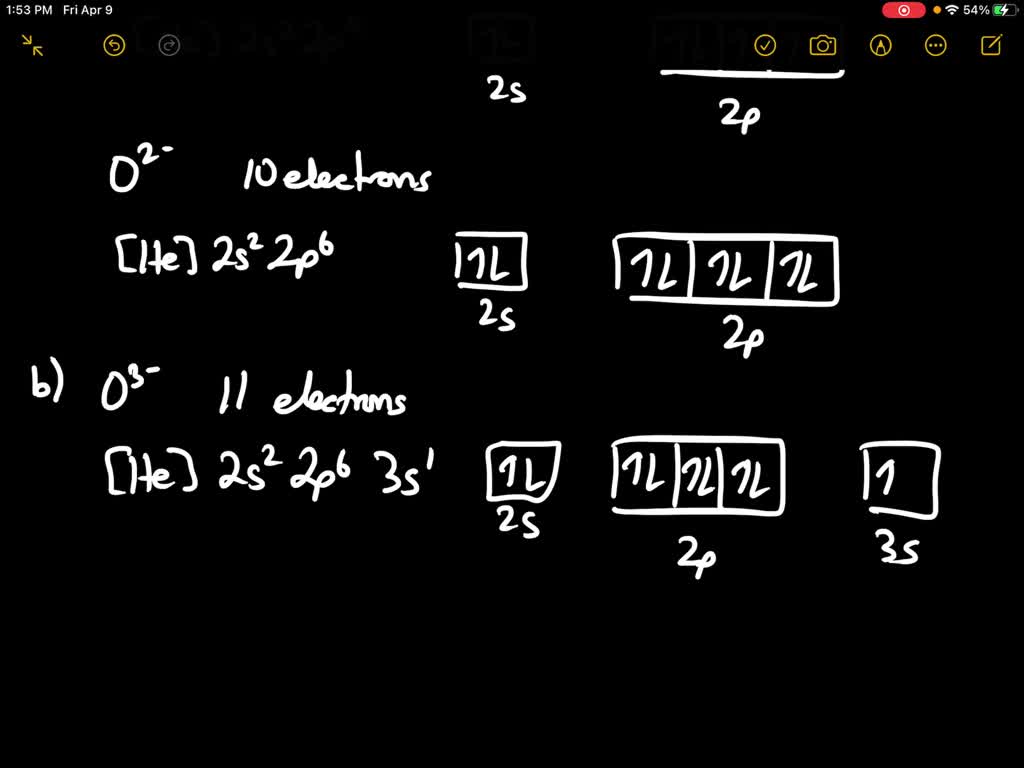 1:53 PM Fri Apr 9 54%
2s 2p
O²⁻ 10 electrons
[He] 2s² 2p⁶ 1L 1L 1L 1L
2s 2p
b) O³⁻ 11 electrons
[He] 2s² 2p⁶ 3s¹ 1L 1L 1L 1L 1
2s 2p 3s